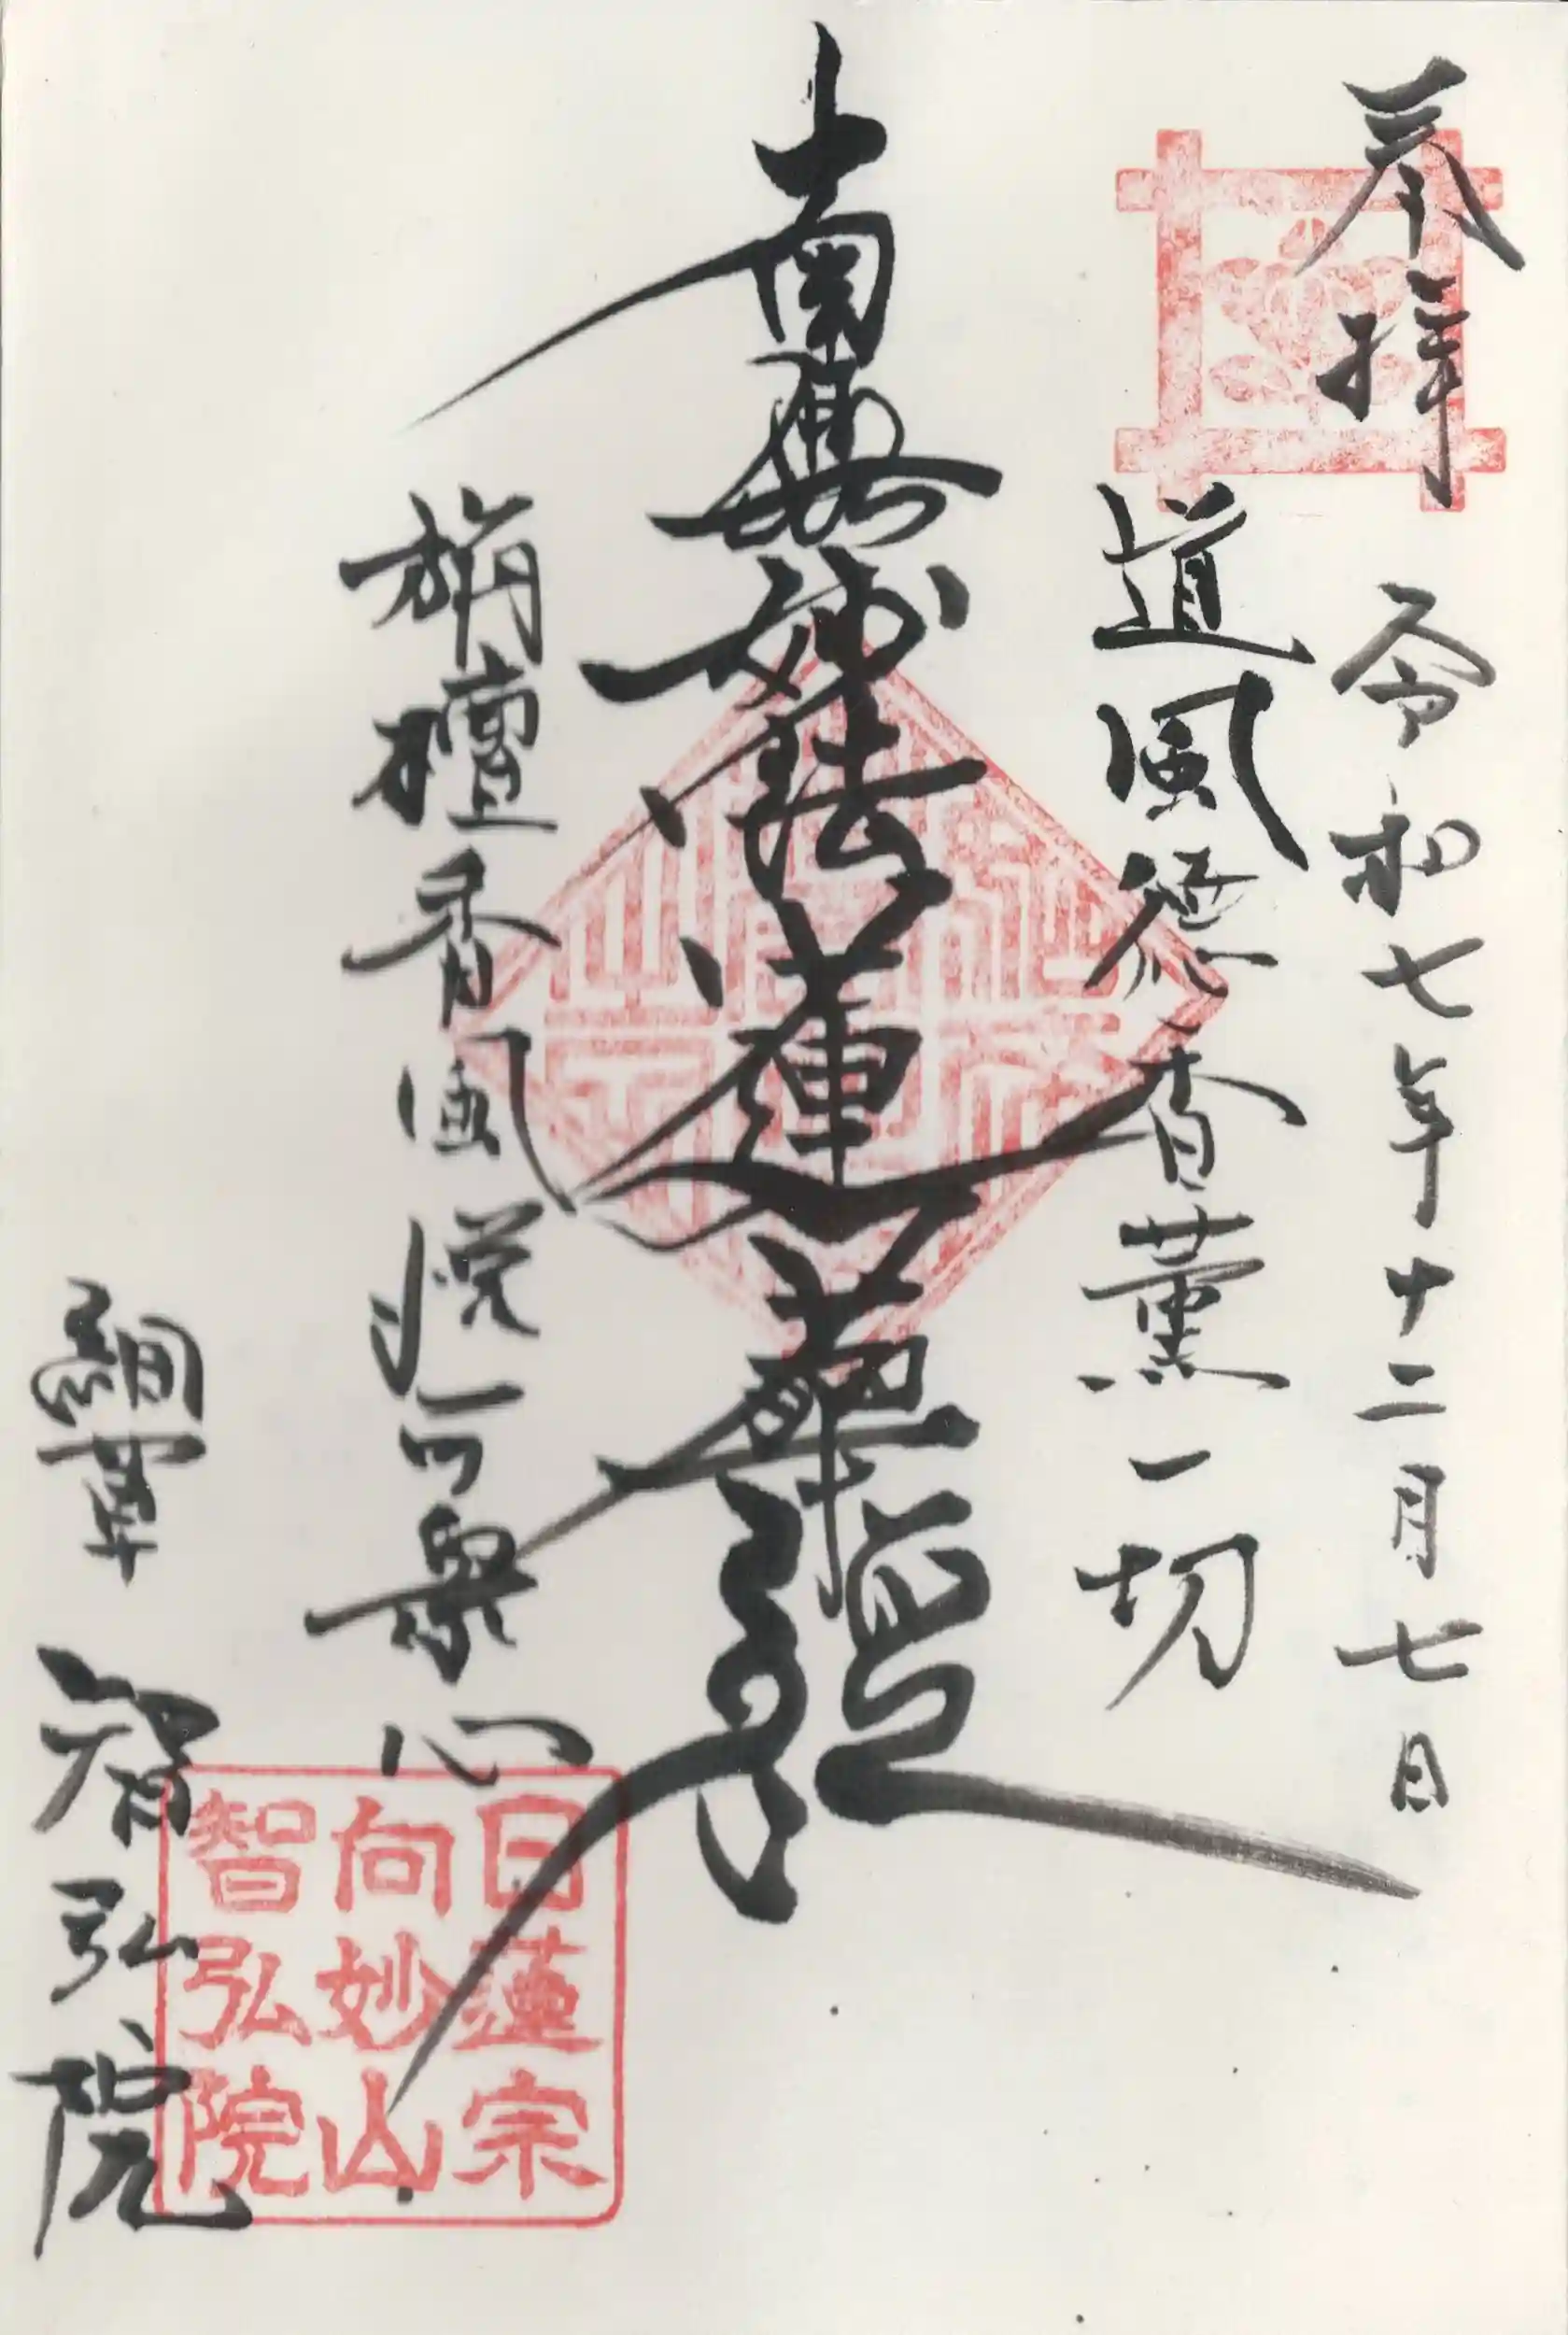 奉拝 令和七年十二月七日
道風徳香薫一切
南無妙法蓮華經
栴檀香風悦可衆心
智弘院
日蓮宗
向妙山
智弘院